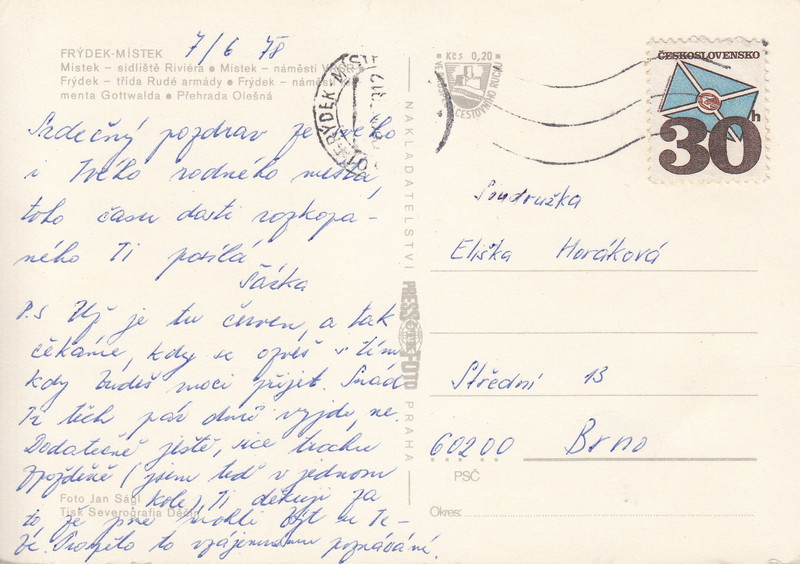 FRÝDEK-MÍSTEK
7/6 78
Místek – sídliště Riviéra ● Místek – náměstí V
Frýdek – třída Rudé armády ● Frýdek – náměs
menta Gottwalda ● Přehrada Olešná
Srdečný pozdrav ze svého
i Tvého rodného města,
toho času dosti rozkopa-
ného Ti posílá
Šárka
P.S Už je tu červen, a tak
čekáme, kdy se ozveš s tím
kdy budeš moci přijet. Snad
Ti těch pár dnů vyjde, ne.
Dodatečně ještě, sice trochu
opožděně (jsem teď v jednom
kole), Ti děkuji za
to, že jsme mohli být u Te-
be. Prospělo to vzájemnému poznávání.
Foto Jan Ságl
Tisk Severografia Děčín
NAKLADATELSTVÍ PRESSFOTO PRAHA
Kčs 0,20
CESTOVNÍHO RUCHU
FRÝDEK-MÍSTEK
ČESKOSLOVENSKO
30h
Soudružka
Eliška Horáková
Střední 13
60200 Brno
PSČ
Okres: